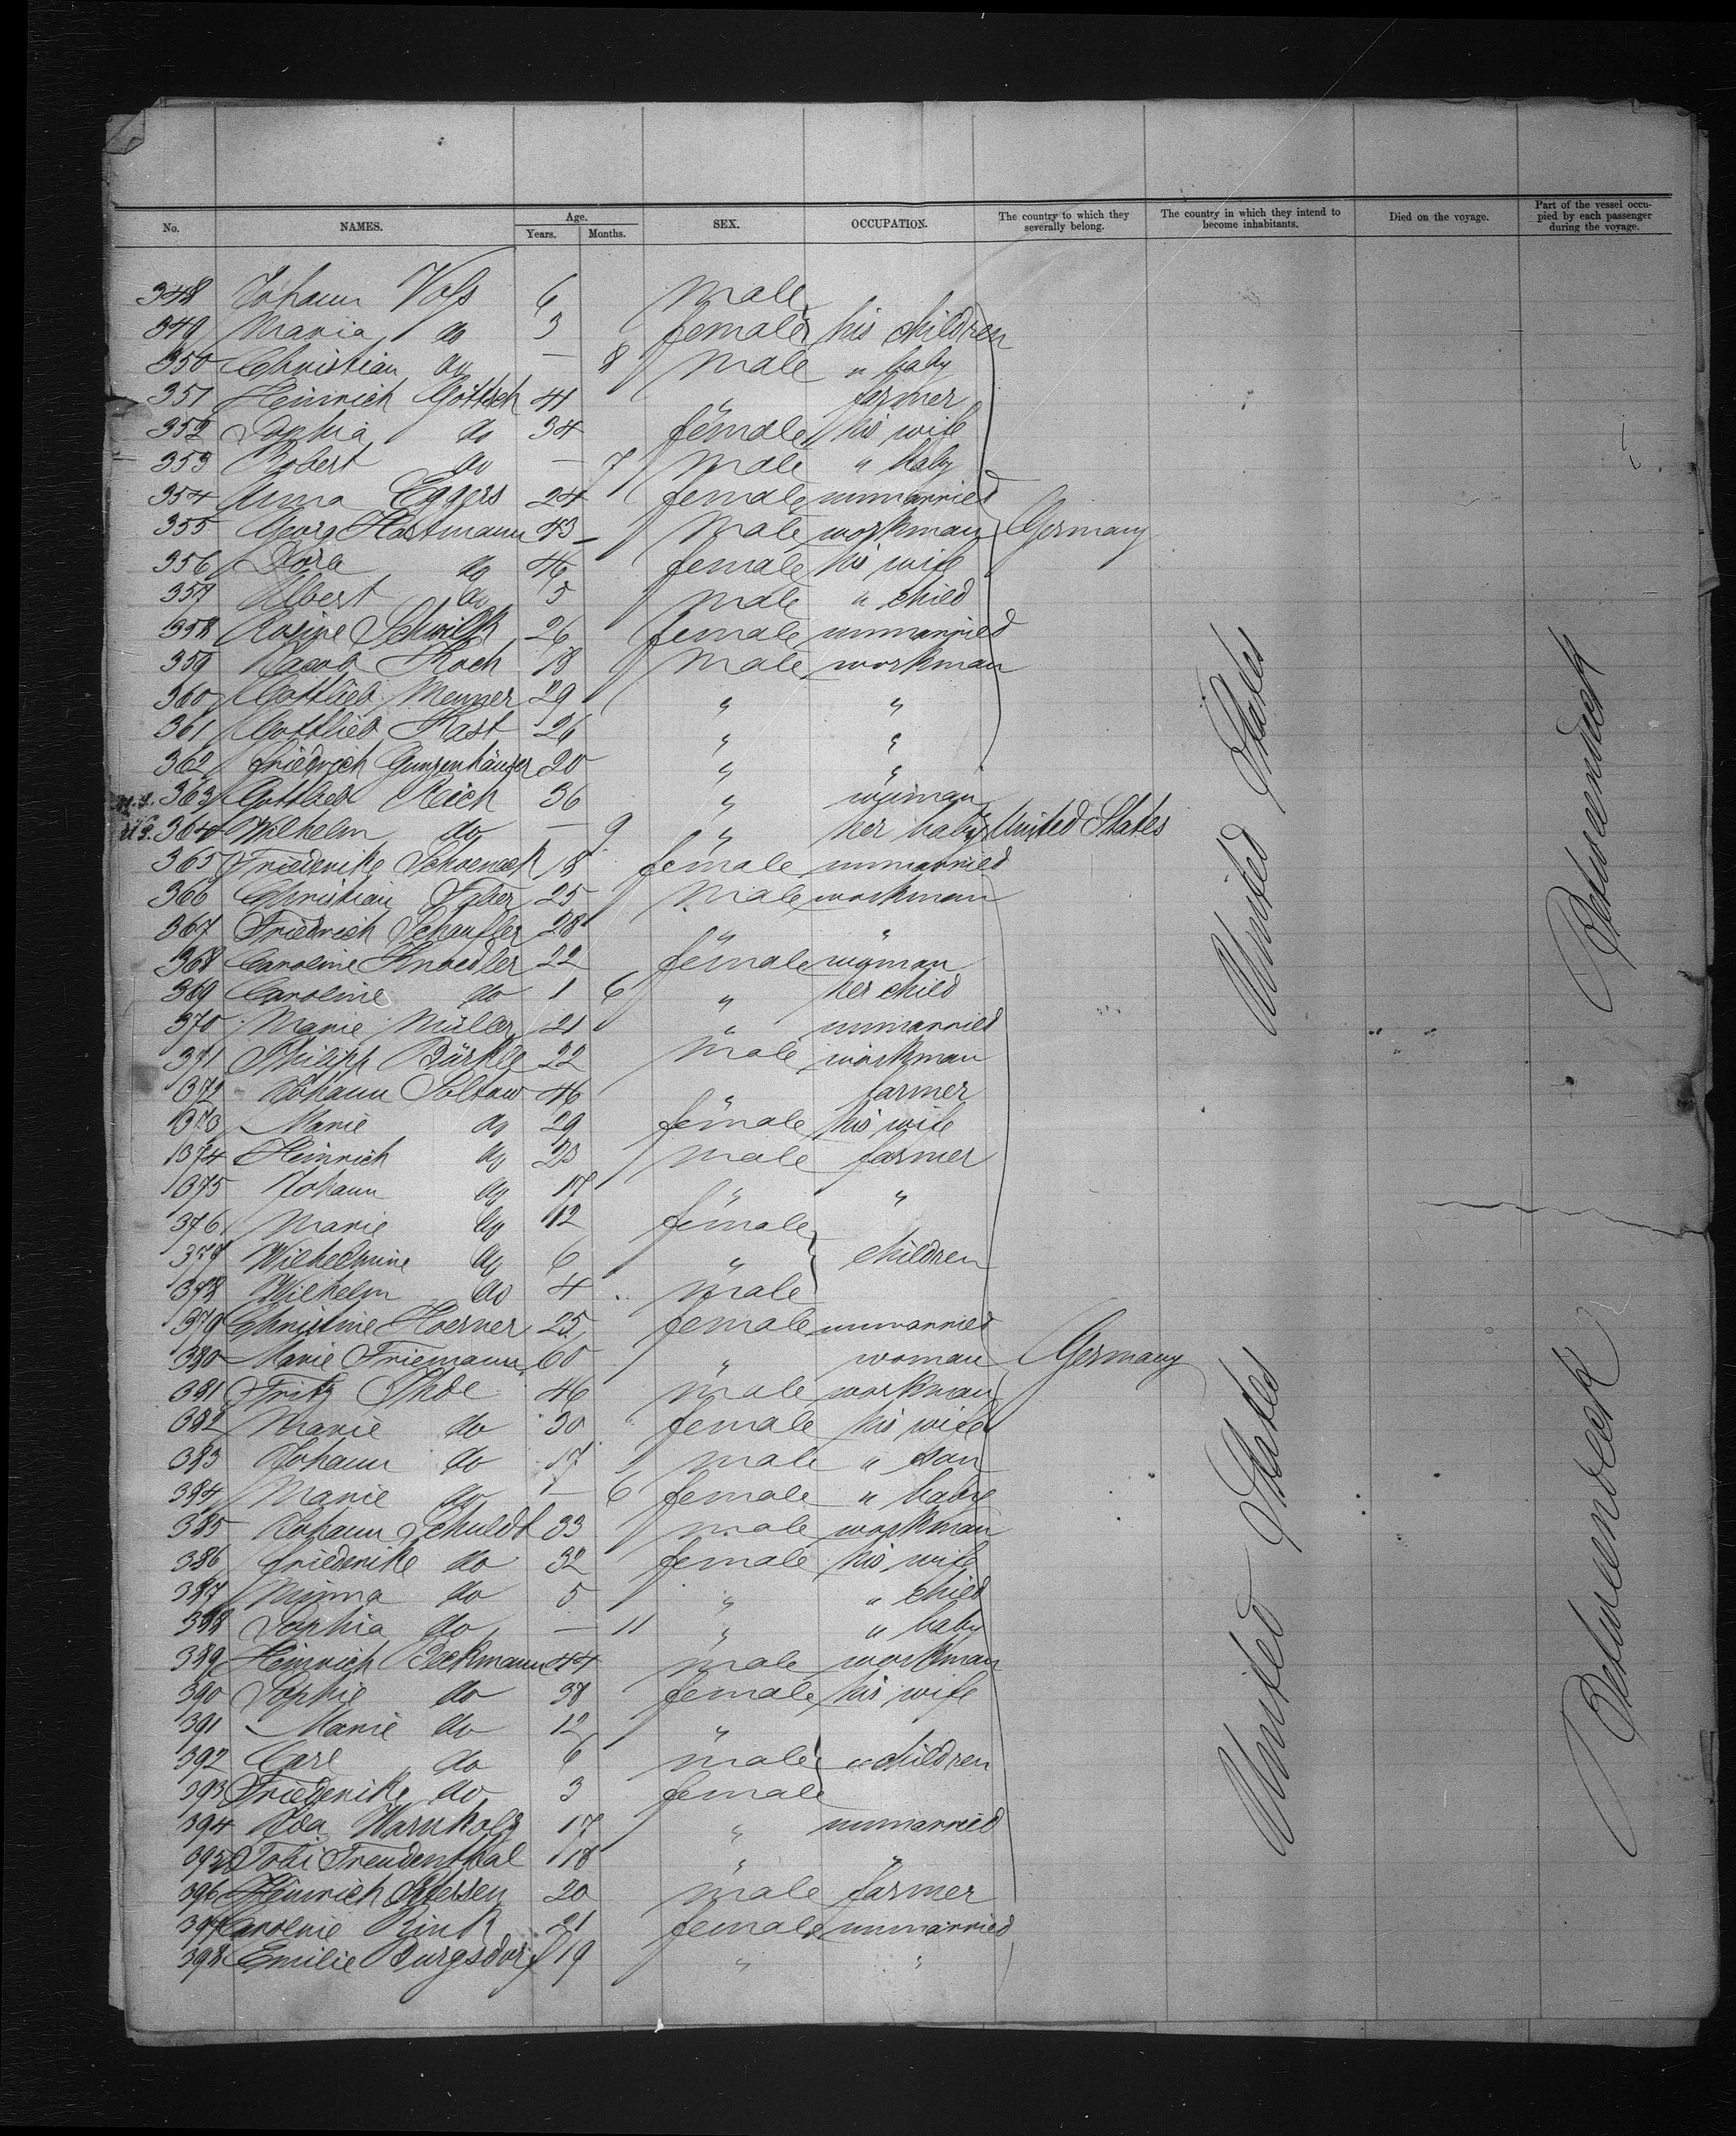 No. NAMES. Age. Years. Months. SEX. OCCUPATION. The country to which they severally belong. The country in which they intend to become inhabitants. Died on the voyage. Part of the vessel occupied by each passenger during the voyage.
348 Johann Voß 6 male
349 Maria do 3 female his children
350 Christian do — 8 male " baby
351 Heinrich Göttsch 41 " farmer
352 Sophia do 34 female his wife
353 Robert do — 7 male " baby
354 Anna Eggers 24 female unmarried
355 Georg Hartmann 43 male workman Germany
356 Dora do 46 female his wife
357 Albert do 5 male " child
358 Rosine Schwilk 26 female unmarried
359 Jacob Koch 18 male workman
360 Gottlieb Menger 29 " "
361 Gottlieb Rast 26 " "
362 Friedrich Gunzenhäuser 20 " "
363 Gottlieb Reich 36 " woman
364 Wilhelm do — 9 " her baby United States
365 Friederike Schoeneck 18 female unmarried
366 Christian Faber 25 male workman
367 Friedrich Schaufler 28 " "
368 Caroline Knoedler 22 female woman
369 Caroline do 1 6 " her child
370 Marie Müller 21 " unmarried
371 Philipp Bürkle 22 male workman
372 Johann Soltow 46 " farmer
373 Marie do 29 female his wife
374 Heinrich do 23 male farmer
375 Johann do 17 " "
376 Marie do 12 female
377 Wilhelmine do 6 " children
378 Wilhelm do 4 male
379 Christine Hoerner 25 female unmarried
380 Marie Friemann 60 " woman Germany
381 Fritz Thde 46 male workman
382 Marie do 30 female his wife
383 Johann do 17 male " son
384 Marie do — 6 female " baby
385 Johann Schuldt 33 male workman
386 Friederike do 32 female his wife
387 Minna do 5 " " child
388 Sophia do — 11 " " baby
389 Heinrich Beckmann 44 male workman
390 Sophie do 38 female his wife
391 Marie do 12 "
392 Carl do 6 male " children
393 Friederike do 3 female
394 Ida Warnholz 17 " unmarried
395 Tobi Freudenthal 18 " "
396 Heinrich 20 male farmer
397 Caroline Rink 21 female unmarried
398 Emilie Burgsdorf 19 " "
United States
Betweendeck
United States
Betweendeck